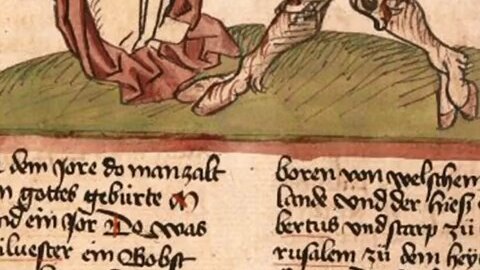 dem Jore do man zalt
gottes gebürte M
ein Jor Do was
siluester ein Bobst
boren von welschem
lande vnd der hieſ
bertus vnd starp zů
rusalem zů dem hey